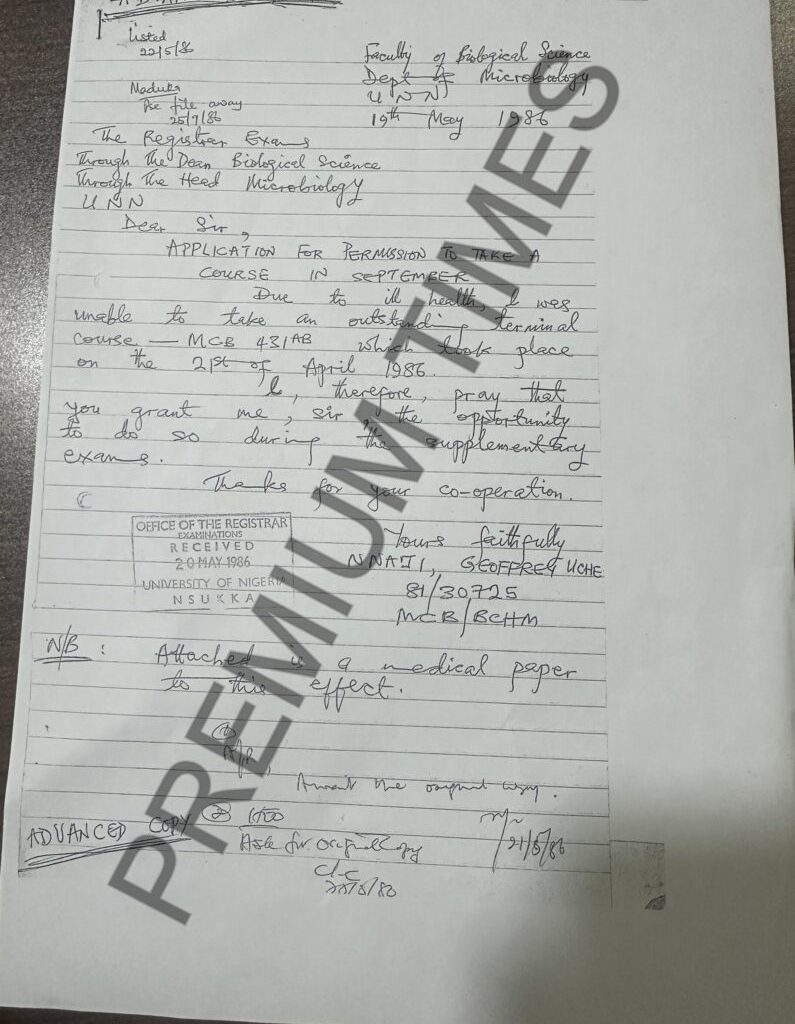 Listed
22/5/86
Faculty of Biological Science
Dept of Microbiology
UNN
19th May 1986
Maduka
file away
25/7/86
The Registrar Exams
Through The Dean Biological Science
Through The Head Microbiology
UNN
Dear Sir,
APPLICATION FOR PERMISSION TO TAKE A
COURSE IN SEPTEMBER
Due to ill health, I was
unable to take an outstanding terminal
course — MCB 431AB which took place
on the 21st of April 1986.
I, therefore, pray that
you grant me, sir, the opportunity
to do so during the supplementary
exams.
Thanks for your co-operation.
OFFICE OF THE REGISTRAR
EXAMINATIONS
RECEIVED
20 MAY 1986
UNIVERSITY OF NIGERIA
NSUKKA
Yours faithfully
NNAJI, GEOFFREY UCHE
81/30725
MCB/BCHM
N/B: Attached is a medical paper
to this effect.
Await the original copy.
21/5/86
ADVANCED COPY
Ask for original copy
PREMIUM TIMES